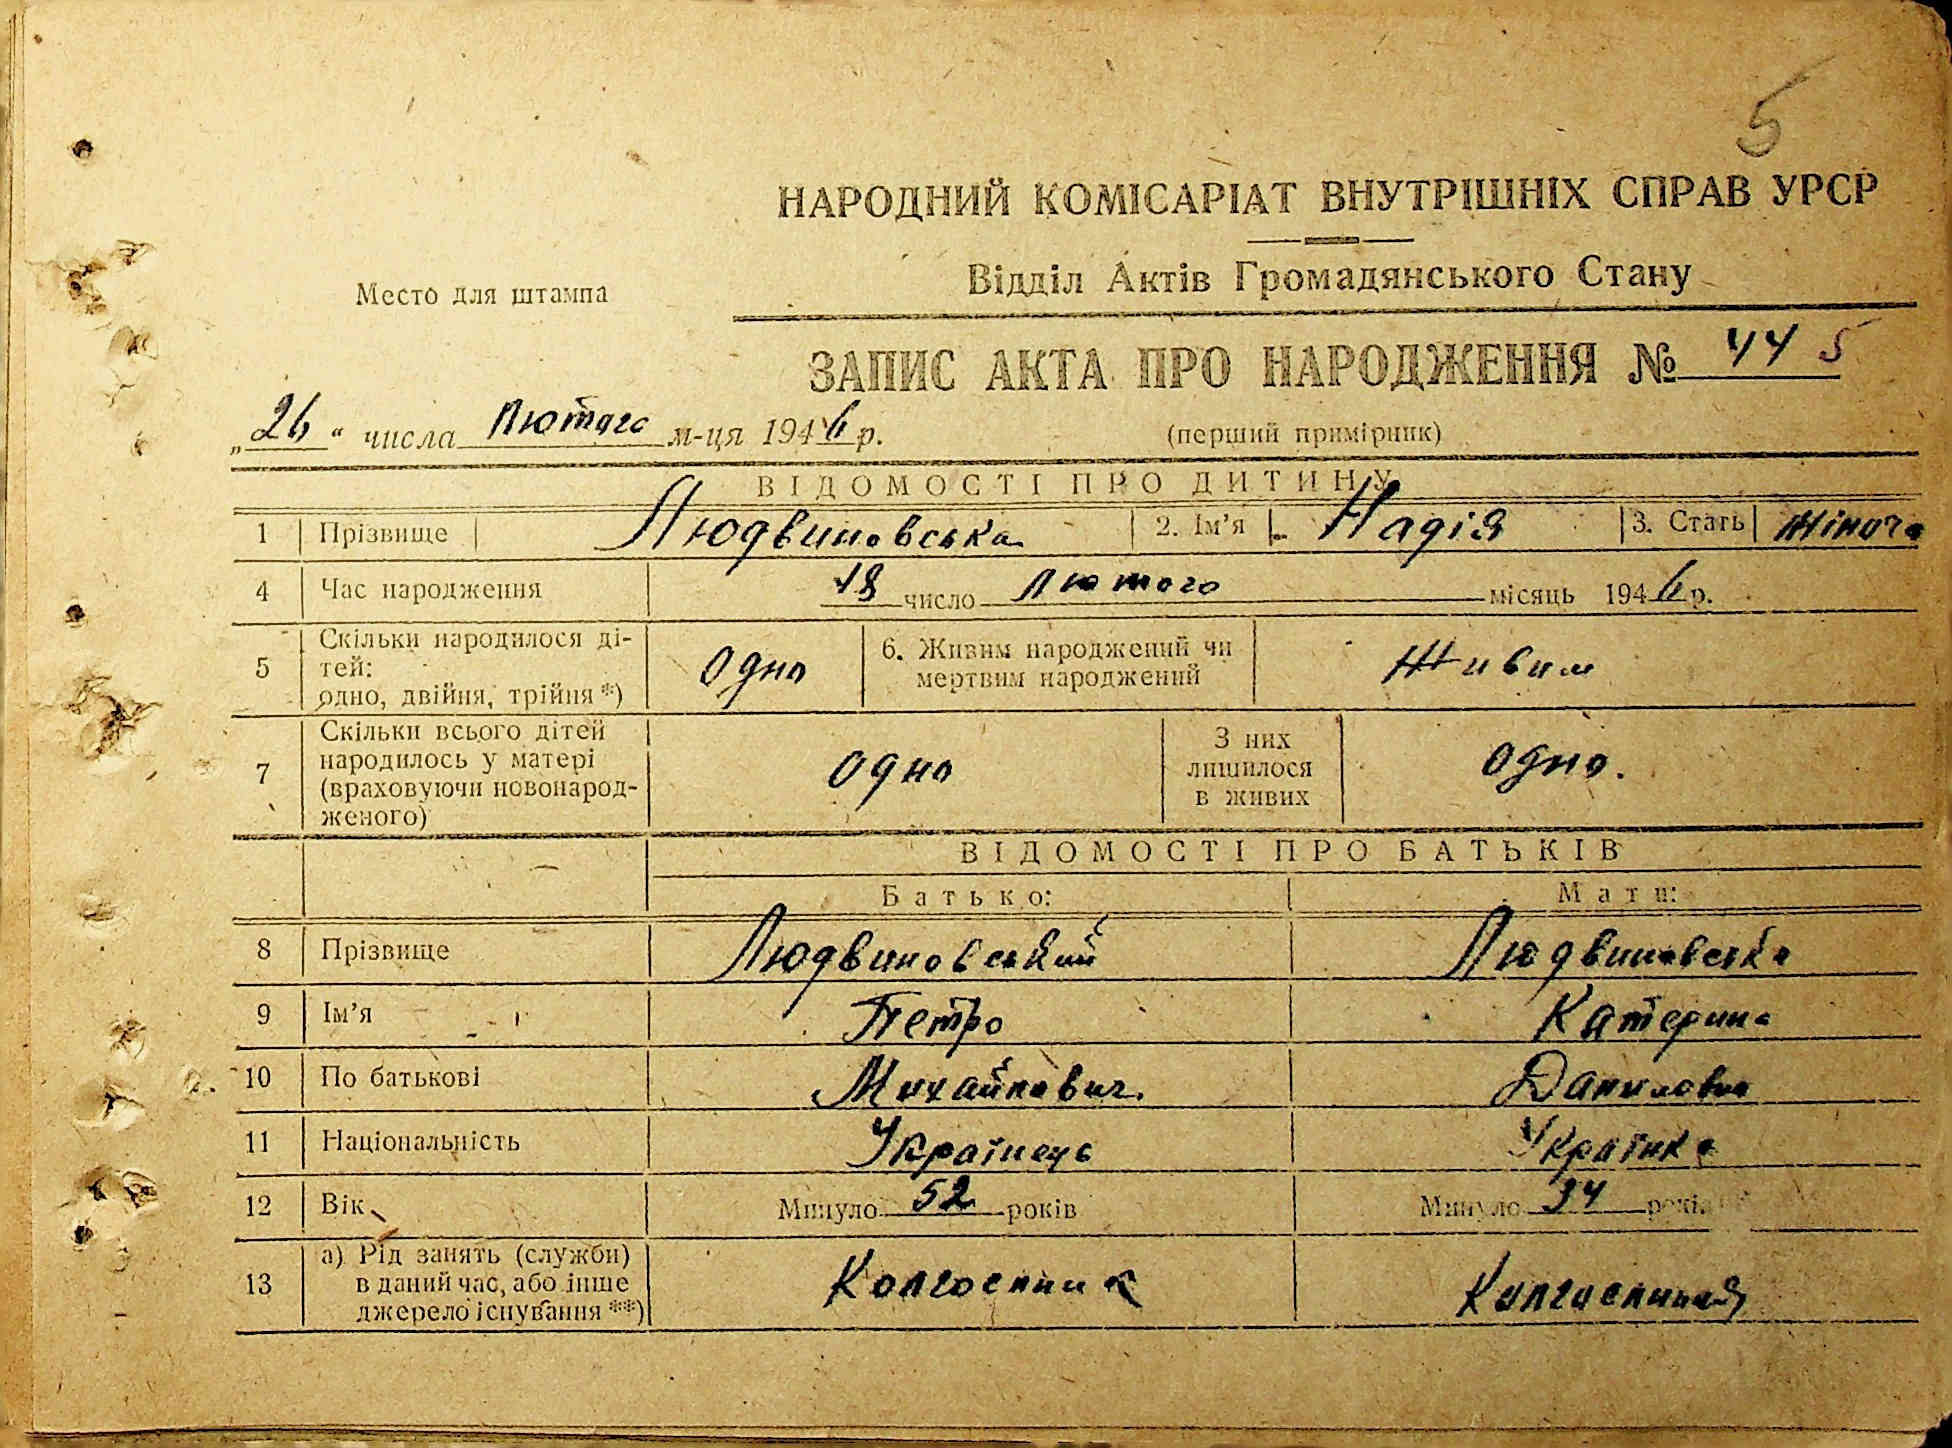 5
НАРОДНИЙ КОМІСАРІАТ ВНУТРІШНІХ СПРАВ УРСР
Место для штампа
Відділ Актів Громадянського Стану
ЗАПИС АКТА ПРО НАРОДЖЕННЯ № 44 5
„26“ числа Лютого м-ця 1946 р. (перший примірник)
ВІДОМОСТІ ПРО ДИТИНУ
1 Прізвище Людвиновська 2. Ім’я Надія 3. Стать Жіноча
4 Час народження 18 число Лютого місяць 1946 р.
5 Скільки народилося ді-
тей:
одно, двійня, трійня *) Одно 6. Живим народжений чи
мертвим народжений Живим
7 Скільки всього дітей
народилось у матері
(враховуючи новонарод-
женого) Одно З них
лишилося
в живих Одно.
ВІДОМОСТІ ПРО БАТЬКІВ
Батько: Мати:
8 Прізвище Людвиновський Людвиновська
9 Ім’я Петро Катерина
10 По батькові Михайлович. Даниловна
11 Національність Українець Українка
12 Вік Минуло 52 років Минуло 34 років
13 а) Рід занять (служби)
в даний час, або інше
джерело існування **) Колгоспник Колгоспниця